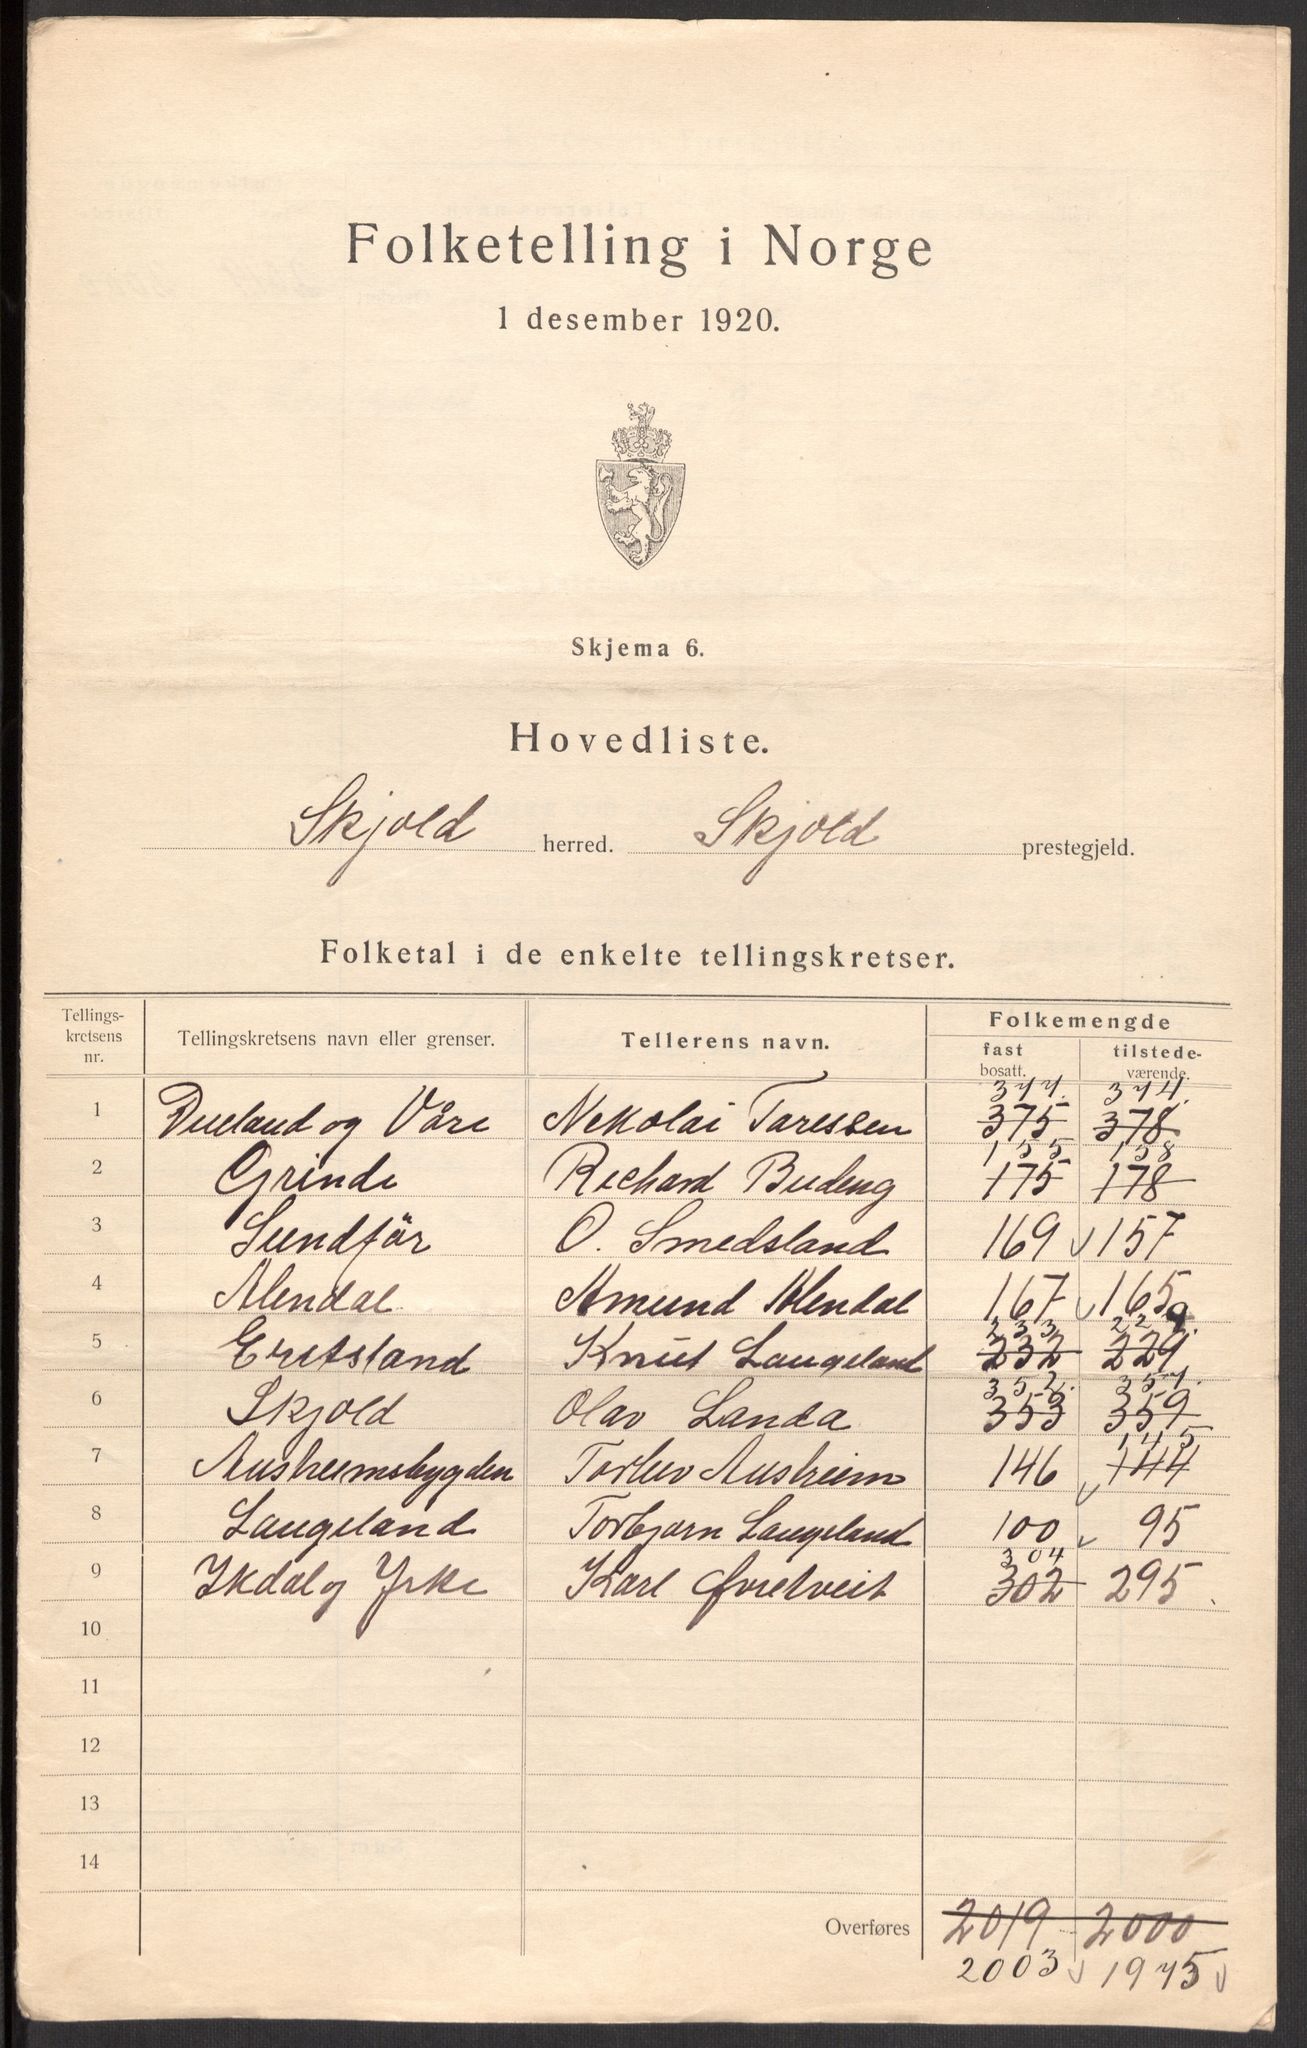 Folketelling i Norge
1 desember 1920.
Skjema 6.
Hovedliste.
Skjold herred. Skjold prestegjeld.
Folketal i de enkelte tellingskretser.
Tellings-
kretsens
nr.
Tellingskretsens navn eller grenser.
Tellerens navn.
Folkemengde
fast
bosatt.
tilstede-
værende.
377. 374.
1 Dueland og Våre Nekolai Taressen 375 378
155 158
2 Grinde Richard Budeng 175 178
3 Sundför O. Smedsland 169 157
4 Alendal Amund Alendal 167 165
233 229.
5 Eretsland Knut Langeland 232 229
352. 357.
6 Skjold Olav Landa 353 359
145
7 Ausheimsbygden Torleiv Ausheim 146 144
8 Langeland Torbjørn Langeland 100 95
304
9 Ikdal og Yrke Karl Øvretveit 302 295.
10
11
12
13
14
Overføres 2019 2000
2003 1975